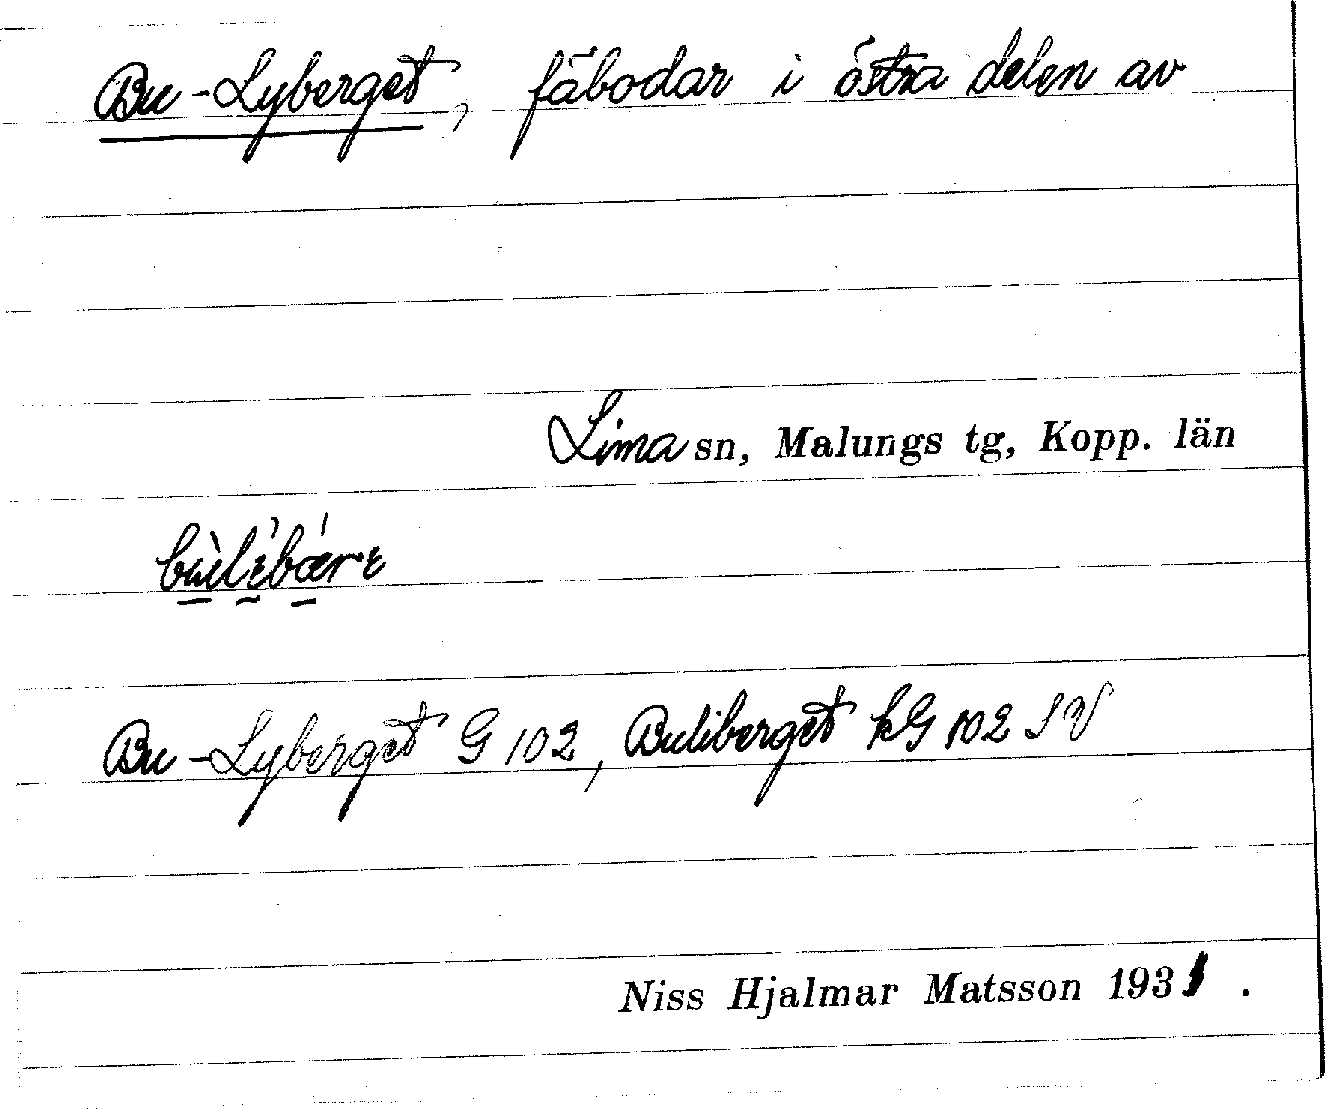 Bu-Lyberget, fäbodar i östra delen av
Lima sn, Malungs tg, Kopp. län
Bu-Lyberget G 102, Buliberget kG 102 SV
Niss Hjalmar Matsson 193